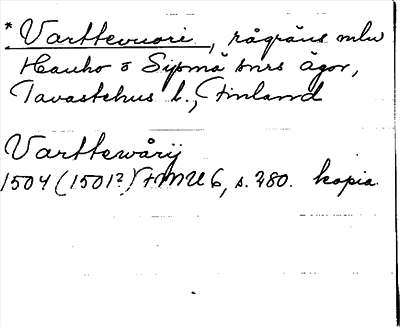 * Varttevuori, rågräns mlu
Hauho o Sysmä snrs ägor,
Tavastehus l., Finland
Varttewårij
1504 (1501?) FMU 6, s. 280. kopia